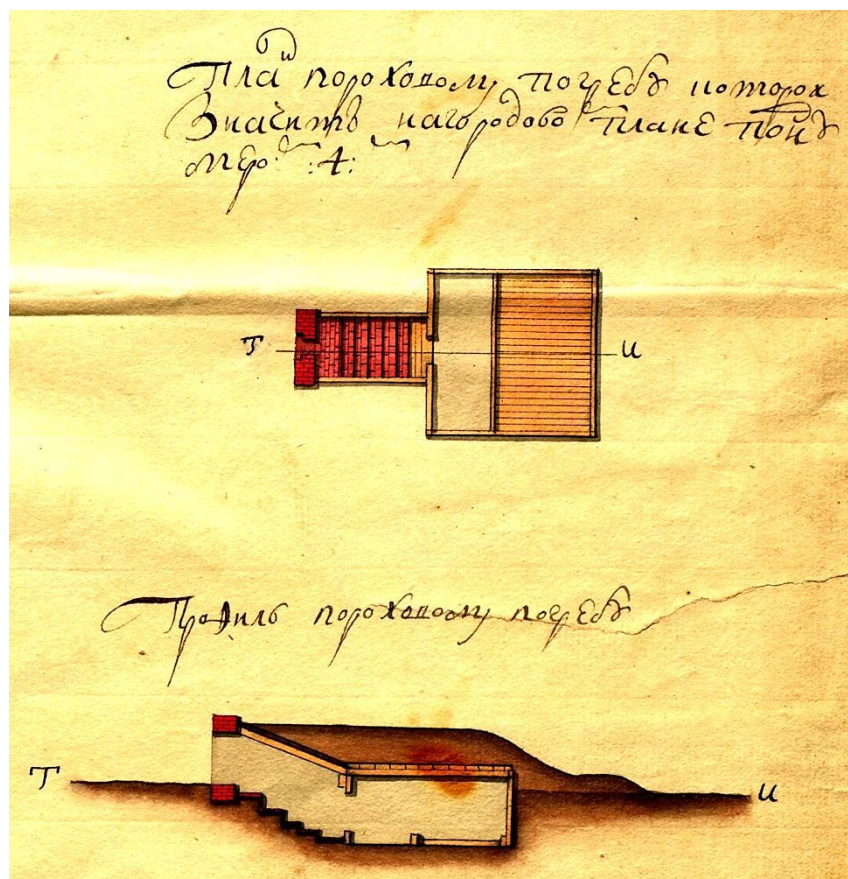 План пороховому погребу которои
Значитъ нагородовомъ плане поднѵ
меромъ :4:
Т
И
Профиль пороховому погребу
Т
И